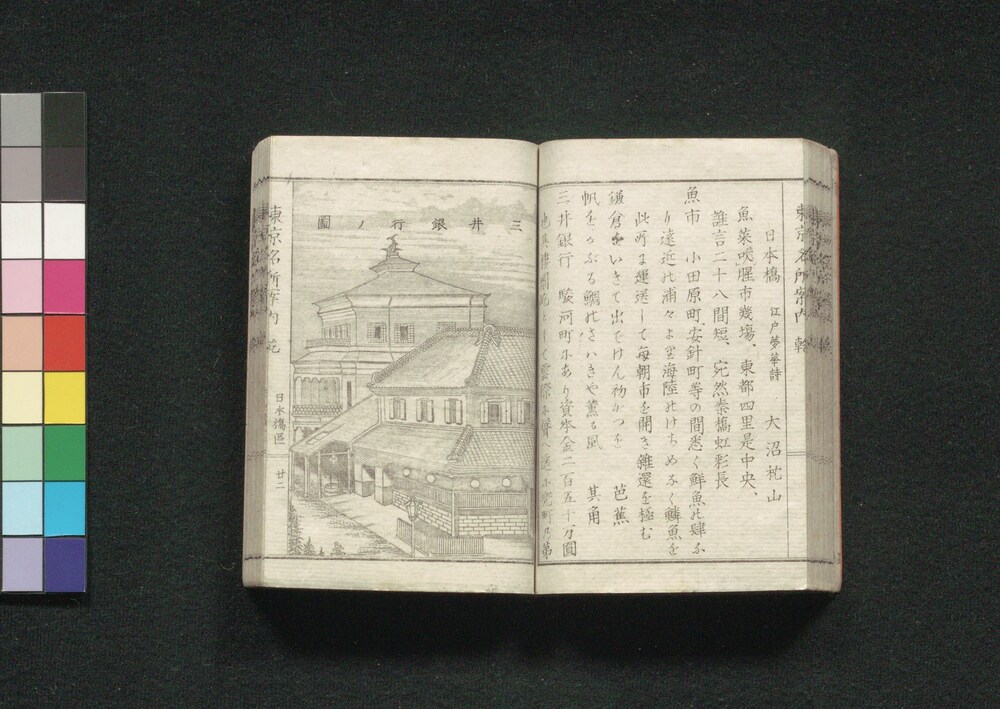 東京名所案内 乾
日本橋 江戸夢華詩 大沼枕山
魚菜腥市幾塲、東都四里是中央、
誰言二十八間短、宛然秦橋虹彩長
魚市 小田原町、安針町等の間悉く鮮魚の肆ふ
り遠近の浦々より海陸のけぢめふく鱗魚を
此所ま運送して毎朝市を開き雑還を極む
鎌倉をいきて出でけん初がつを 芭蕉
帆をかぶる鯛のさハきや薫る風 其角
三井銀行 駿河町にあり資本金二百五十万圓
三井銀行ノ圖
東京名所案内 乾
日本橋區
廿二